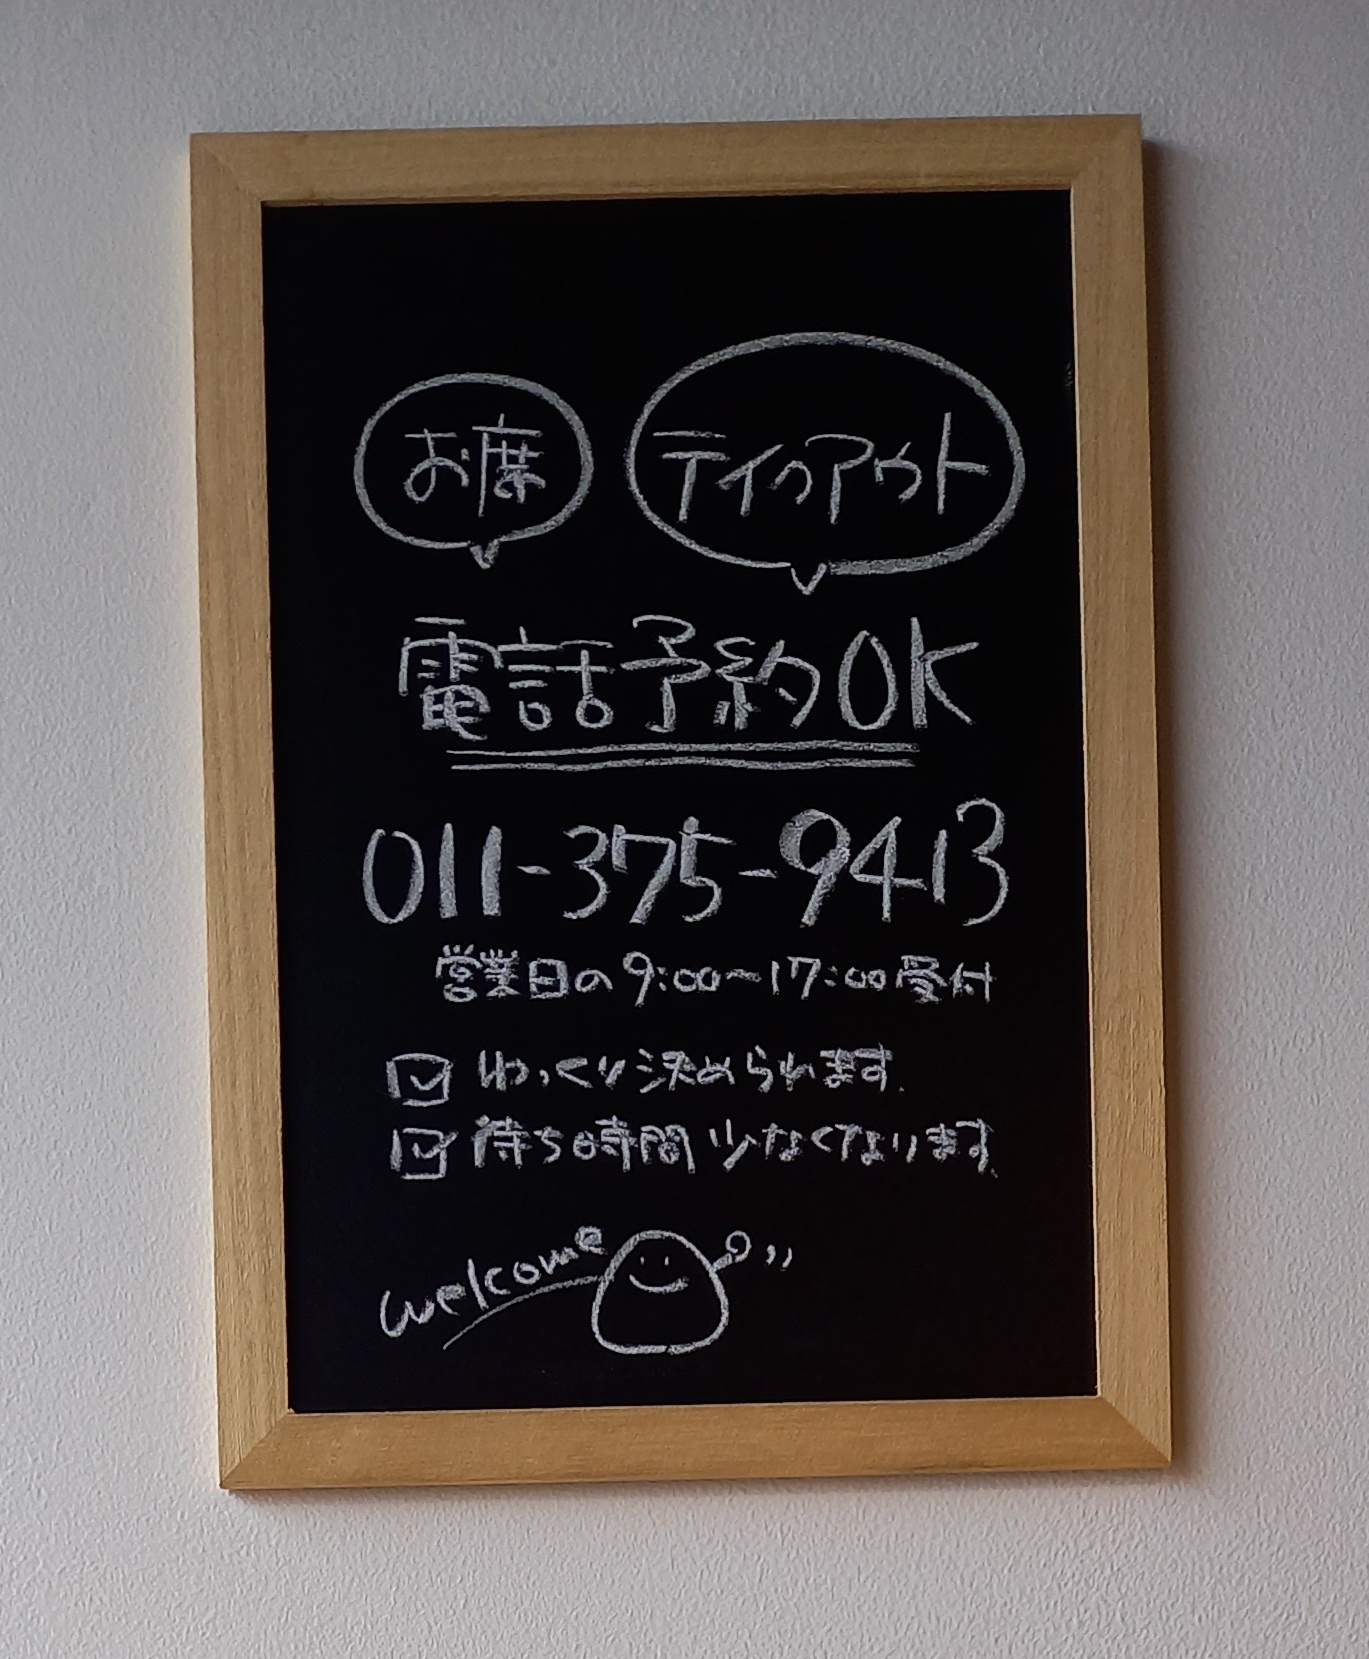 お席 テイクアウト
電話予約OK
011-375-9413
営業日の9:00~17:00受付
ゆっくり決められます.
待ち時間少なくなります.
welcome